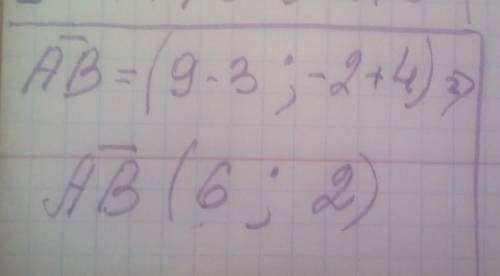 A̅B̅ = (9 - 3 ; -2 + 4) ⇒
A̅B̅ (6 ; 2)